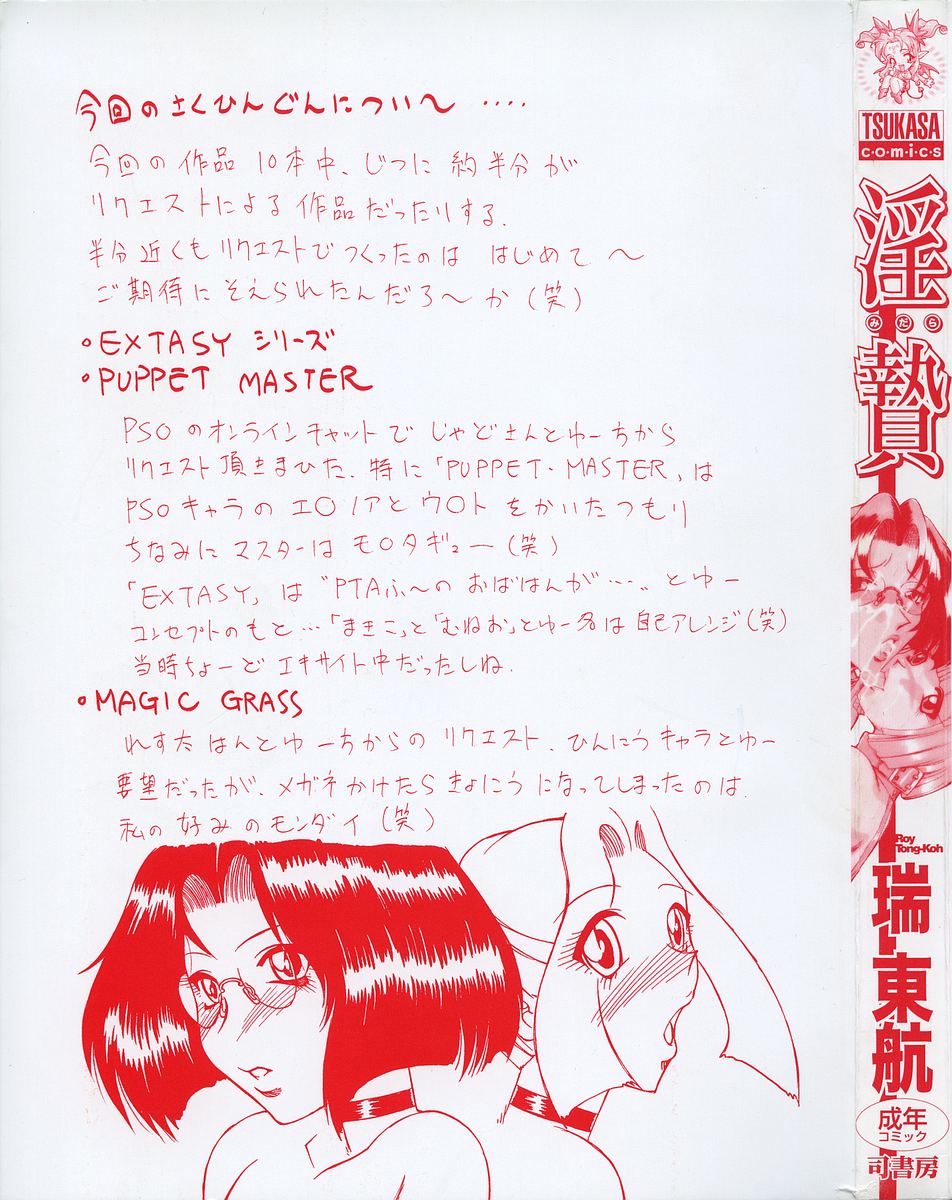 今回のさくひんぐんについ〜 ‥‥
今回の作品 10本中、じつに 約半分が
リクエストによる作品だったりする.
半分近くもリクエストでつくったのは はじめて〜
ご期待にそえられたんだろ〜か (笑)
•EXTASY シリーズ
•PUPPET MASTER
PSOのオンラインチャットで じゃどさんとゆーちから
リクエスト頂きまひた. 特に「PUPPET・MASTER」は
PSOキャラの エ〇ノアと ウ〇ト をかいたつもり
ちなみに マスターは モ〇タギュー (笑)
「EXTASY」は “PTAふ〜の おばはんが…„ とゆー
コンセプトのもと…「まきこ」と「むねお」とゆー名は 自己アレンジ(笑)
当時ちょーど エキサイト中だったしね.
•MAGIC GRASS
れす太 はんとゆーちからの リクエスト、ひんにうキャラとゆー
要望だったが、メガネかけたら きょにう になってしまったのは
私の 好みのモンダイ (笑)
TSUKASA
c·o·m·i·c·s
淫贄
みだら
Roy
Tong-Koh
瑞東航
成年
コミック
司書房